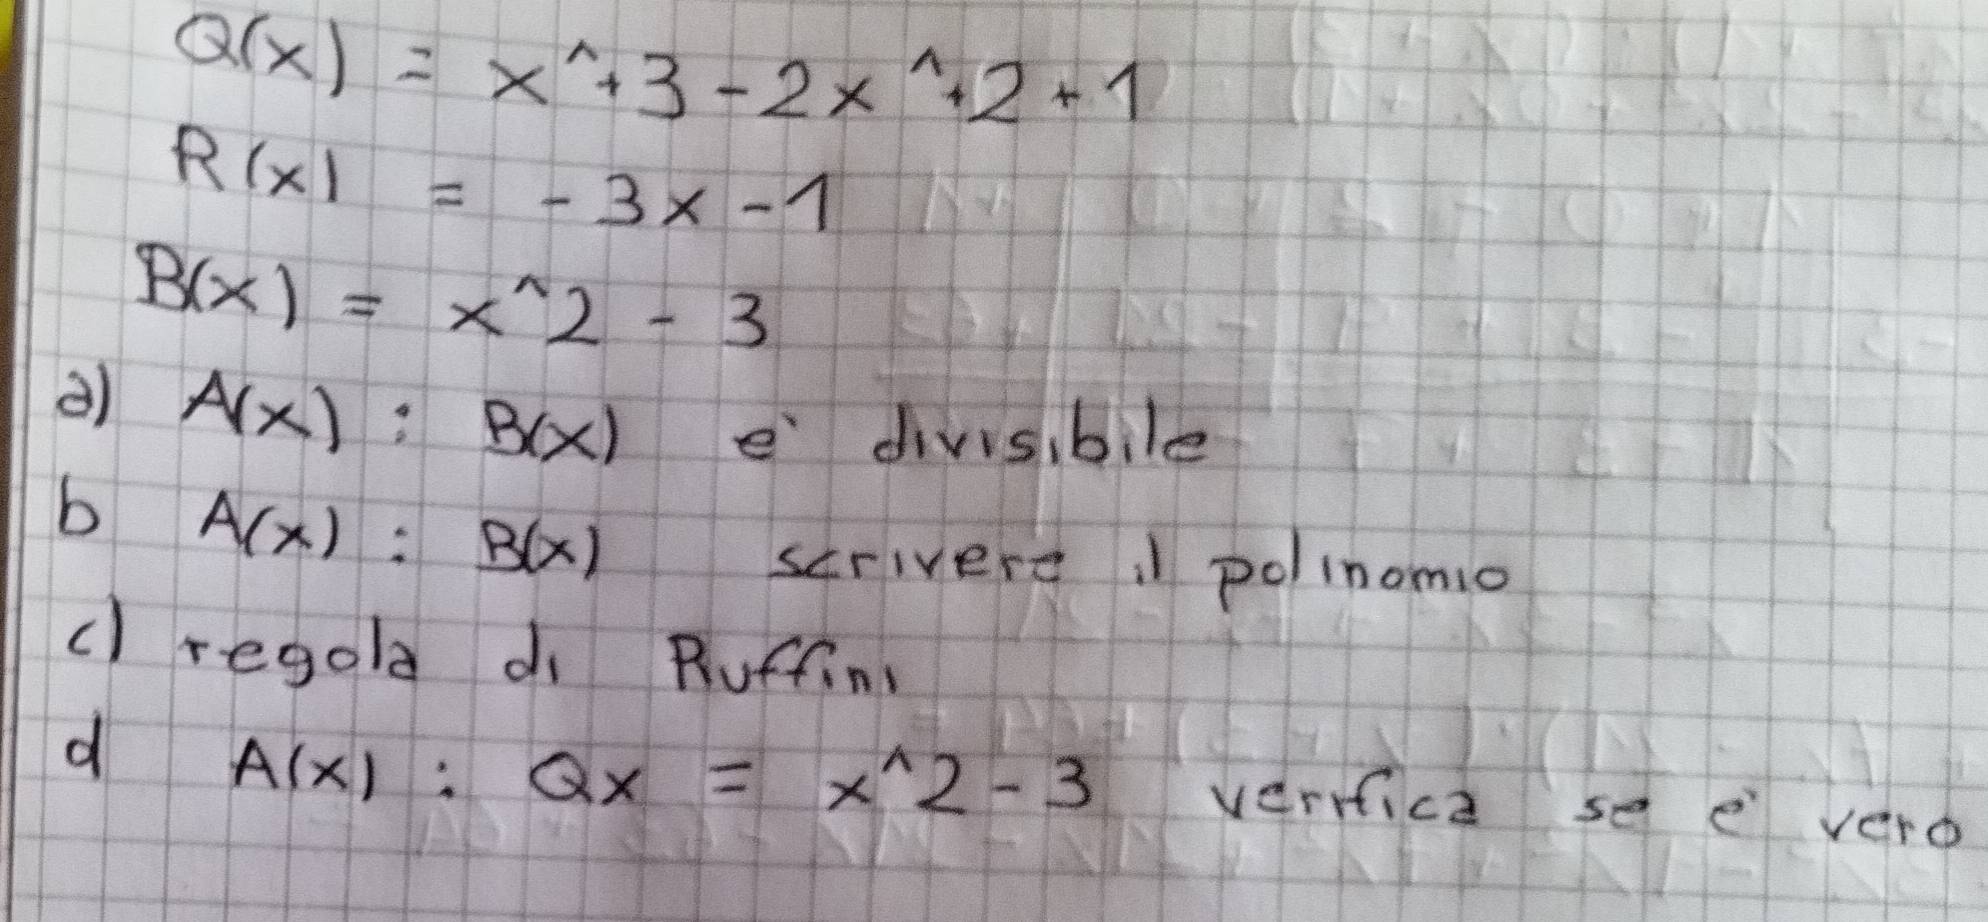 Q(x) = x^+3-2x^+2+1
R(x) = -3x-1
B(x) = x^2-3
a) A(x) : B(x) e' divisibile
b A(x) : B(x) scrivere il polinomio
c) regola di Ruffini
d A(x) : Qx = x^2-3 verifica se e' vero